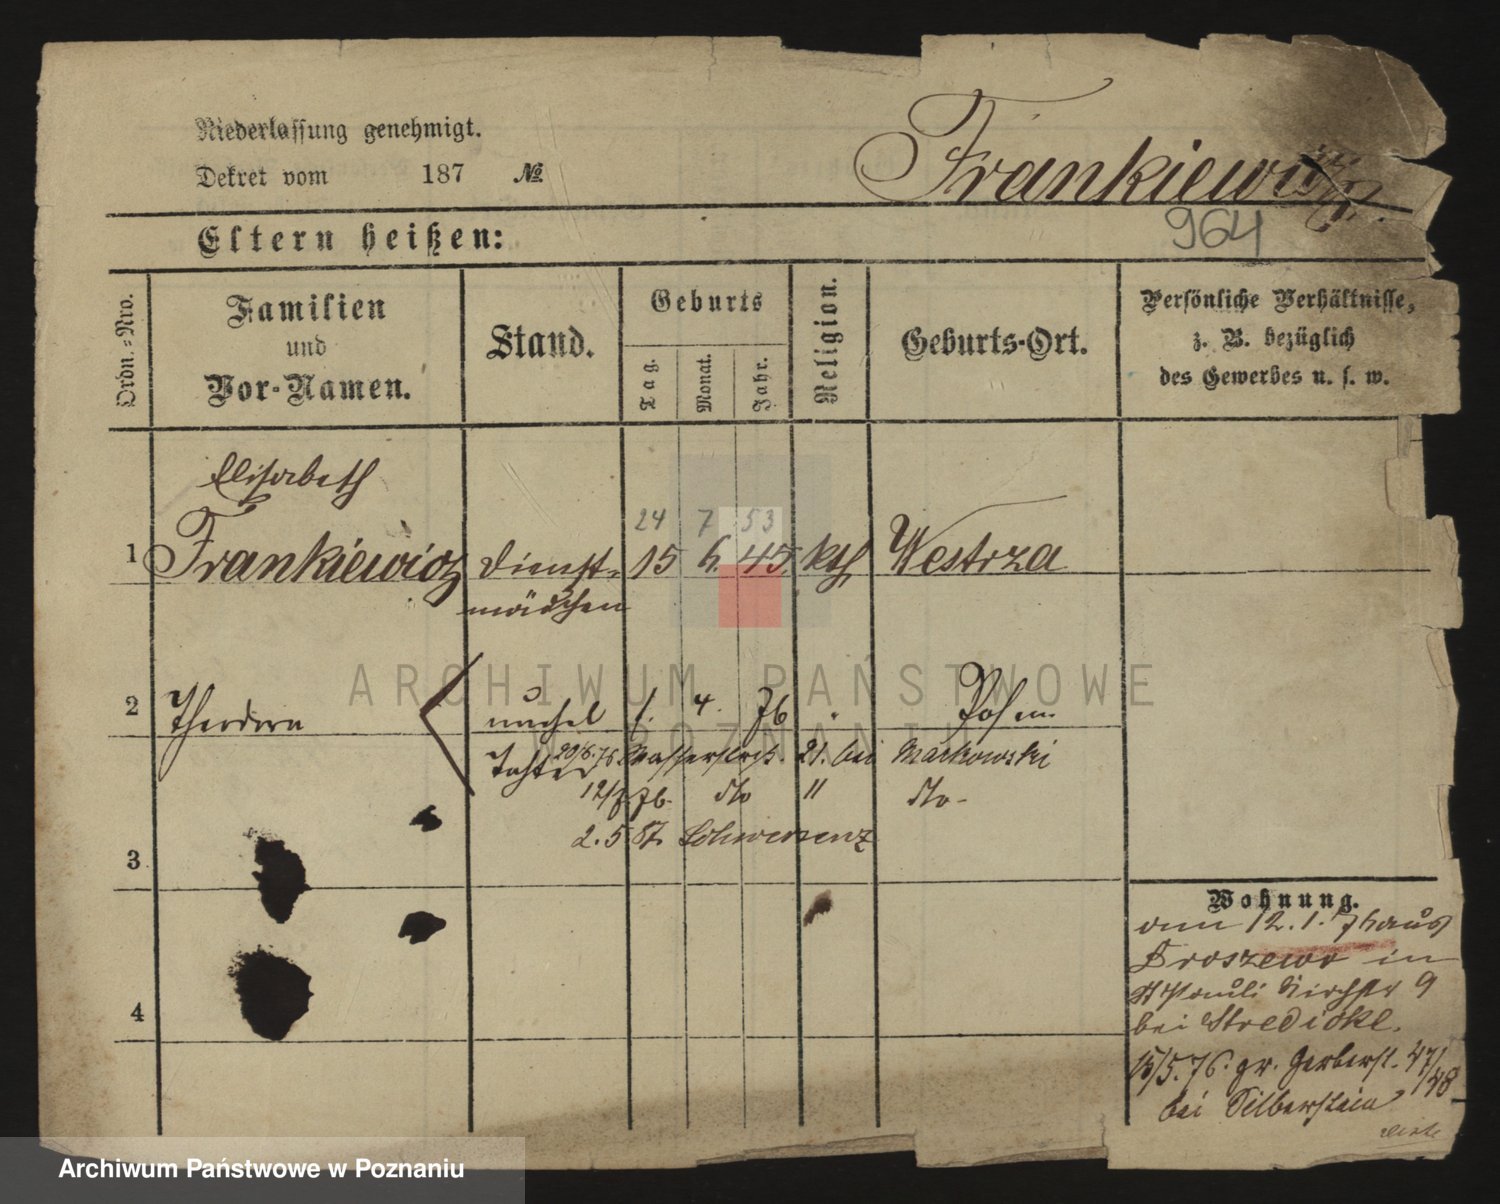 Niederlassung genehmigt.
Dekret vom 187 №
Frankiewicz
964
Eltern heißen:
Ordn.-Nro.
Familien
und
Vor-Namen.
Stand.
Geburts
Tag.
Monat.
Jahr.
Religion.
Geburts-Ort.
Persönliche Verhältnisse,
z. B. bezüglich
des Gewerbes u. s. w.
Elisabeth
24 7 53
1 Frankiewicz Dienst- 15 6. 45. kth Westrza
mädchen
2 Theodora unehel 4. 76 Posen
Tochter 20/6. 76 Wasserstr. 21. bei Markowski
12/7 76. dto " dto-
2. 5 87. Schwersenz
3
4
Wohnung.
am 12. 1. 76 aus
Droszewo in
St Pauli Kirchstr 9
bei Stredicke.
15/5. 76. gr. Gerberst. 47/48
bei Silberstein
ARCHIWUM PAŃSTWOWE
W POZNANIU
Archiwum Państwowe w Poznaniu